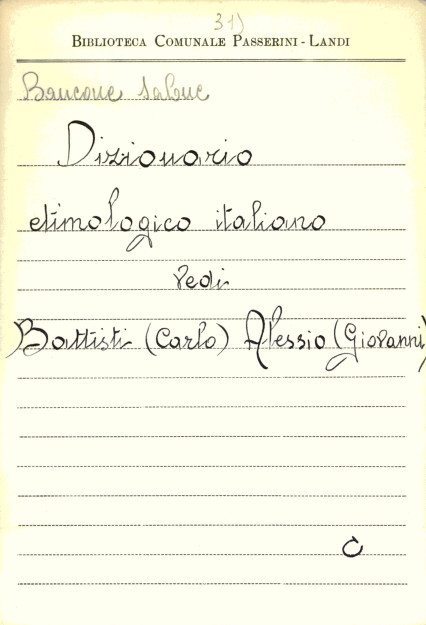 31)
BIBLIOTECA COMUNALE PASSERINI-LANDI
Bancone Sala
Dizionario
etimologico italiano
vedi
Battisti (Carlo) Alessio (Giovanni)
C